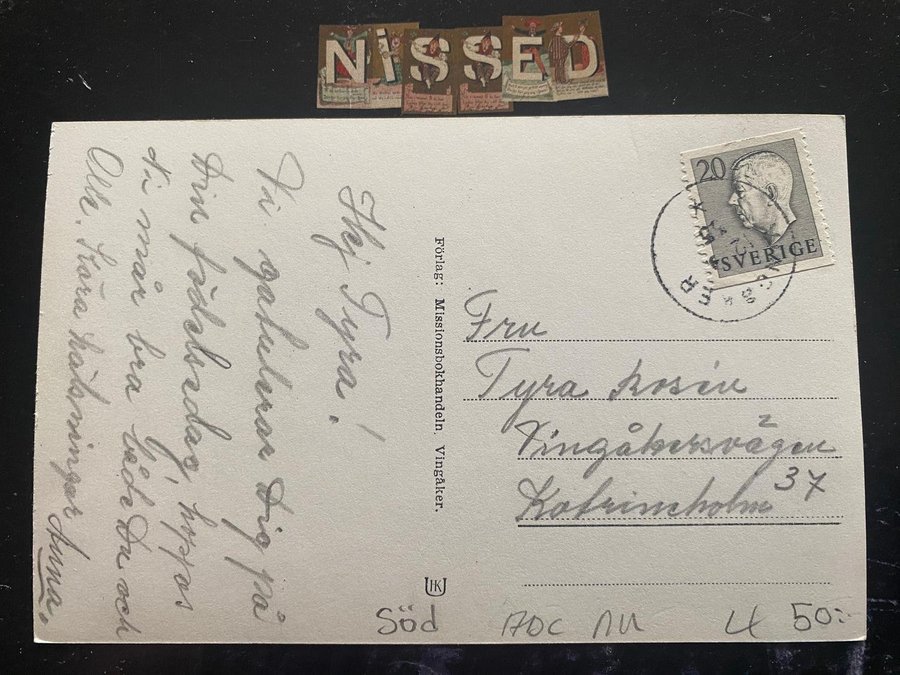 NISSED
Hej Tyra!
Vi gratulerar Dig på
Din födelsedag, hoppas
Ni mår bra både Du och
Kära hälsningar Anna.
Förlag: Missionsbokhandeln, Vingåker.
20
SVERIGE
Fru
Tyra Rosén
Vingåkersvägen
37
Katrineholm
HK
Söd
ADC NU 4 50:-